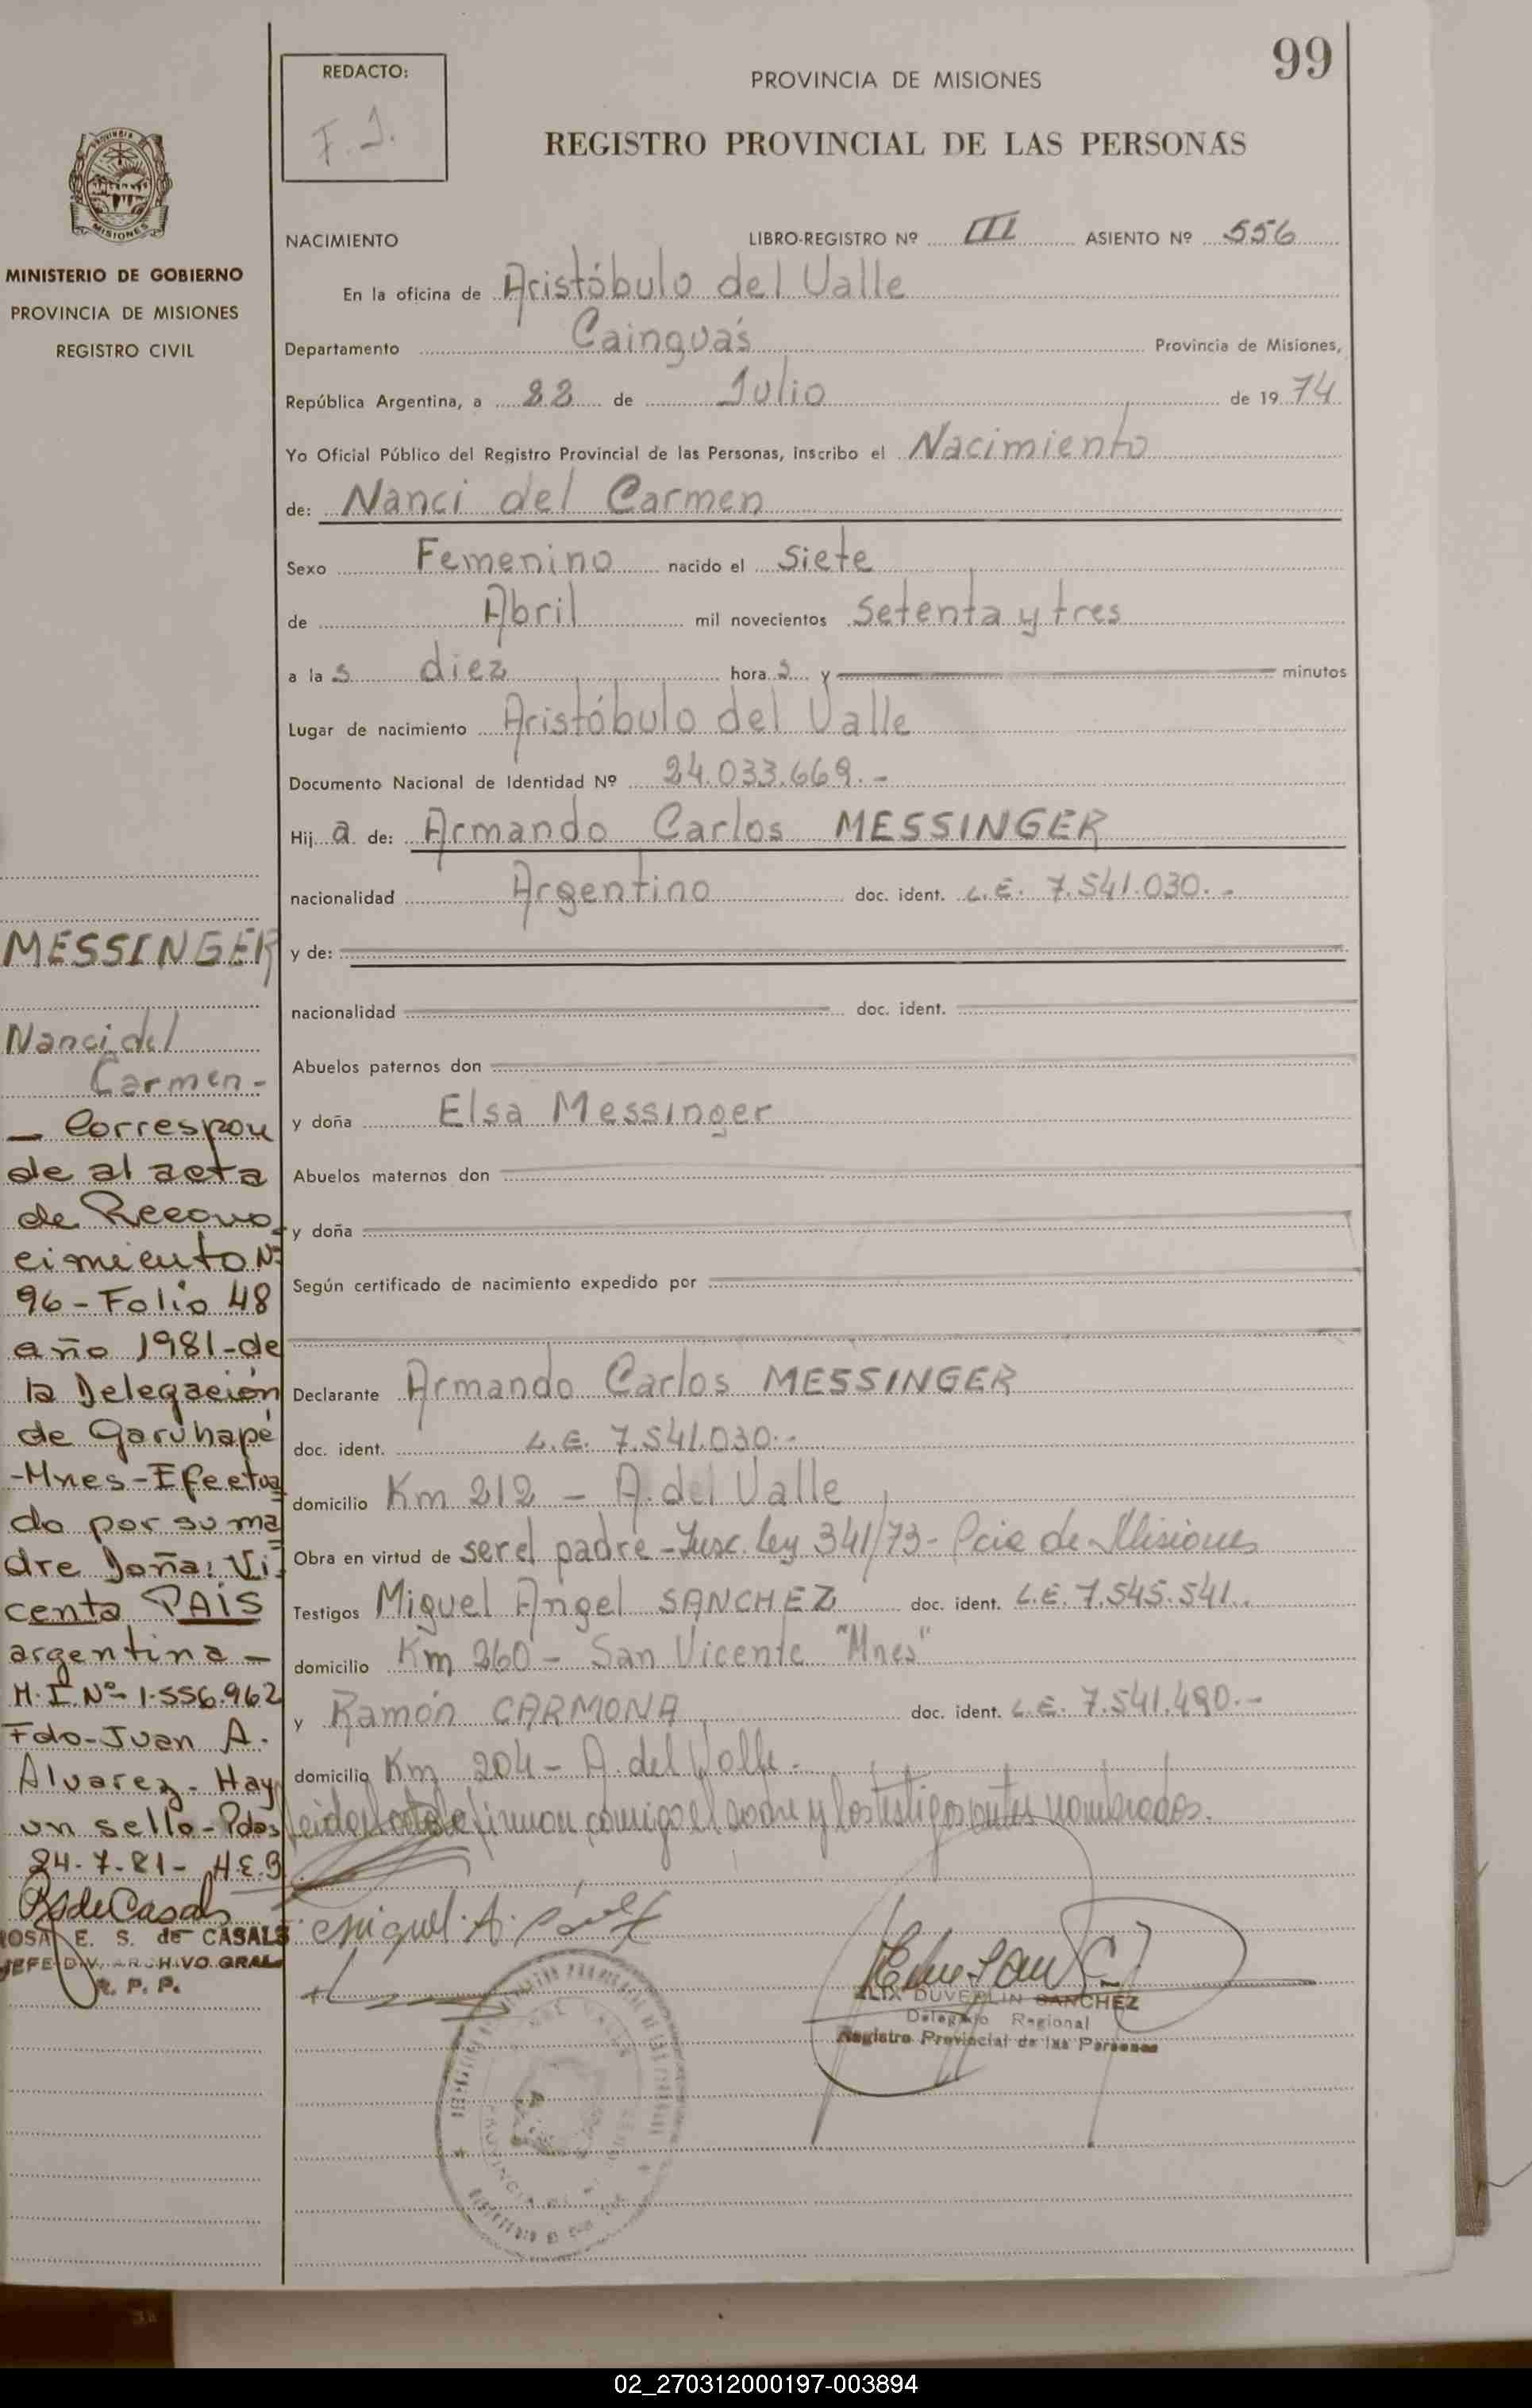 99
REDACTO:
F. J.
PROVINCIA DE MISIONES
REGISTRO PROVINCIAL DE LAS PERSONAS
MISIONES
MINISTERIO DE GOBIERNO
PROVINCIA DE MISIONES
REGISTRO CIVIL
NACIMIENTO LIBRO-REGISTRO Nº III ASIENTO Nº 556
En la oficina de Aristóbulo del Valle
Departamento Cainguás Provincia de Misiones,
República Argentina, a 22 de Julio de 19 74
Yo Oficial Público del Registro Provincial de las Personas, inscribo el Nacimiento
de: Nanci del Carmen
Sexo Femenino nacido el Siete
de Abril mil novecientos Setenta y tres
a la s diez hora s y minutos
Lugar de nacimiento Aristóbulo del Valle
Documento Nacional de Identidad Nº 24.033.669.-
Hij a de: Armando Carlos MESSINGER
nacionalidad Argentino doc. ident. L.E. 7.541.030.-
y de:
nacionalidad doc. ident.
Abuelos paternos don
y doña Elsa Messinger
Abuelos maternos don
y doña
Según certificado de nacimiento expedido por
Declarante Armando Carlos MESSINGER
doc. ident. L.E. 7.541.030.-
domicilio Km 212 - A. del Valle
Obra en virtud de ser el padre - Insc. Ley 341/73 - Pcia de Misiones
Testigos Miguel Angel SANCHEZ doc. ident. L.E. 7.545.541..
domicilio Km 260 - San Vicente "Mnes"
y Ramón CARMONA doc. ident. L.E. 7.541.490.-
domicilio Km 204 - A. del Valle -
leida el acta la firman conmigo el padre y los testigos antes nombrados.
MESSINGER
Nanci del
Carmen -
- Correspon
de al acta
de Recono
cimiento Nº
96 - Folio 48
año 1981 - de
la Delegación
de Garuhapé
- Mnes - Efectua
do por su ma
dre Doña: Vi
centa PAIS
argentina -
M.I Nº 1.556.962
Fdo - Juan A.
Alvarez - Hay
un sello - Pdas
24-7-81 - H.E.B
ROSA E. S. de CASALS
JEFE DIV. ARCHIVO GRAL
R. P. P.
Miguel A.
DUVERLIN SANCHEZ
Delegado Regional
Registro Provincial de las Personas
02_270312000197-003894